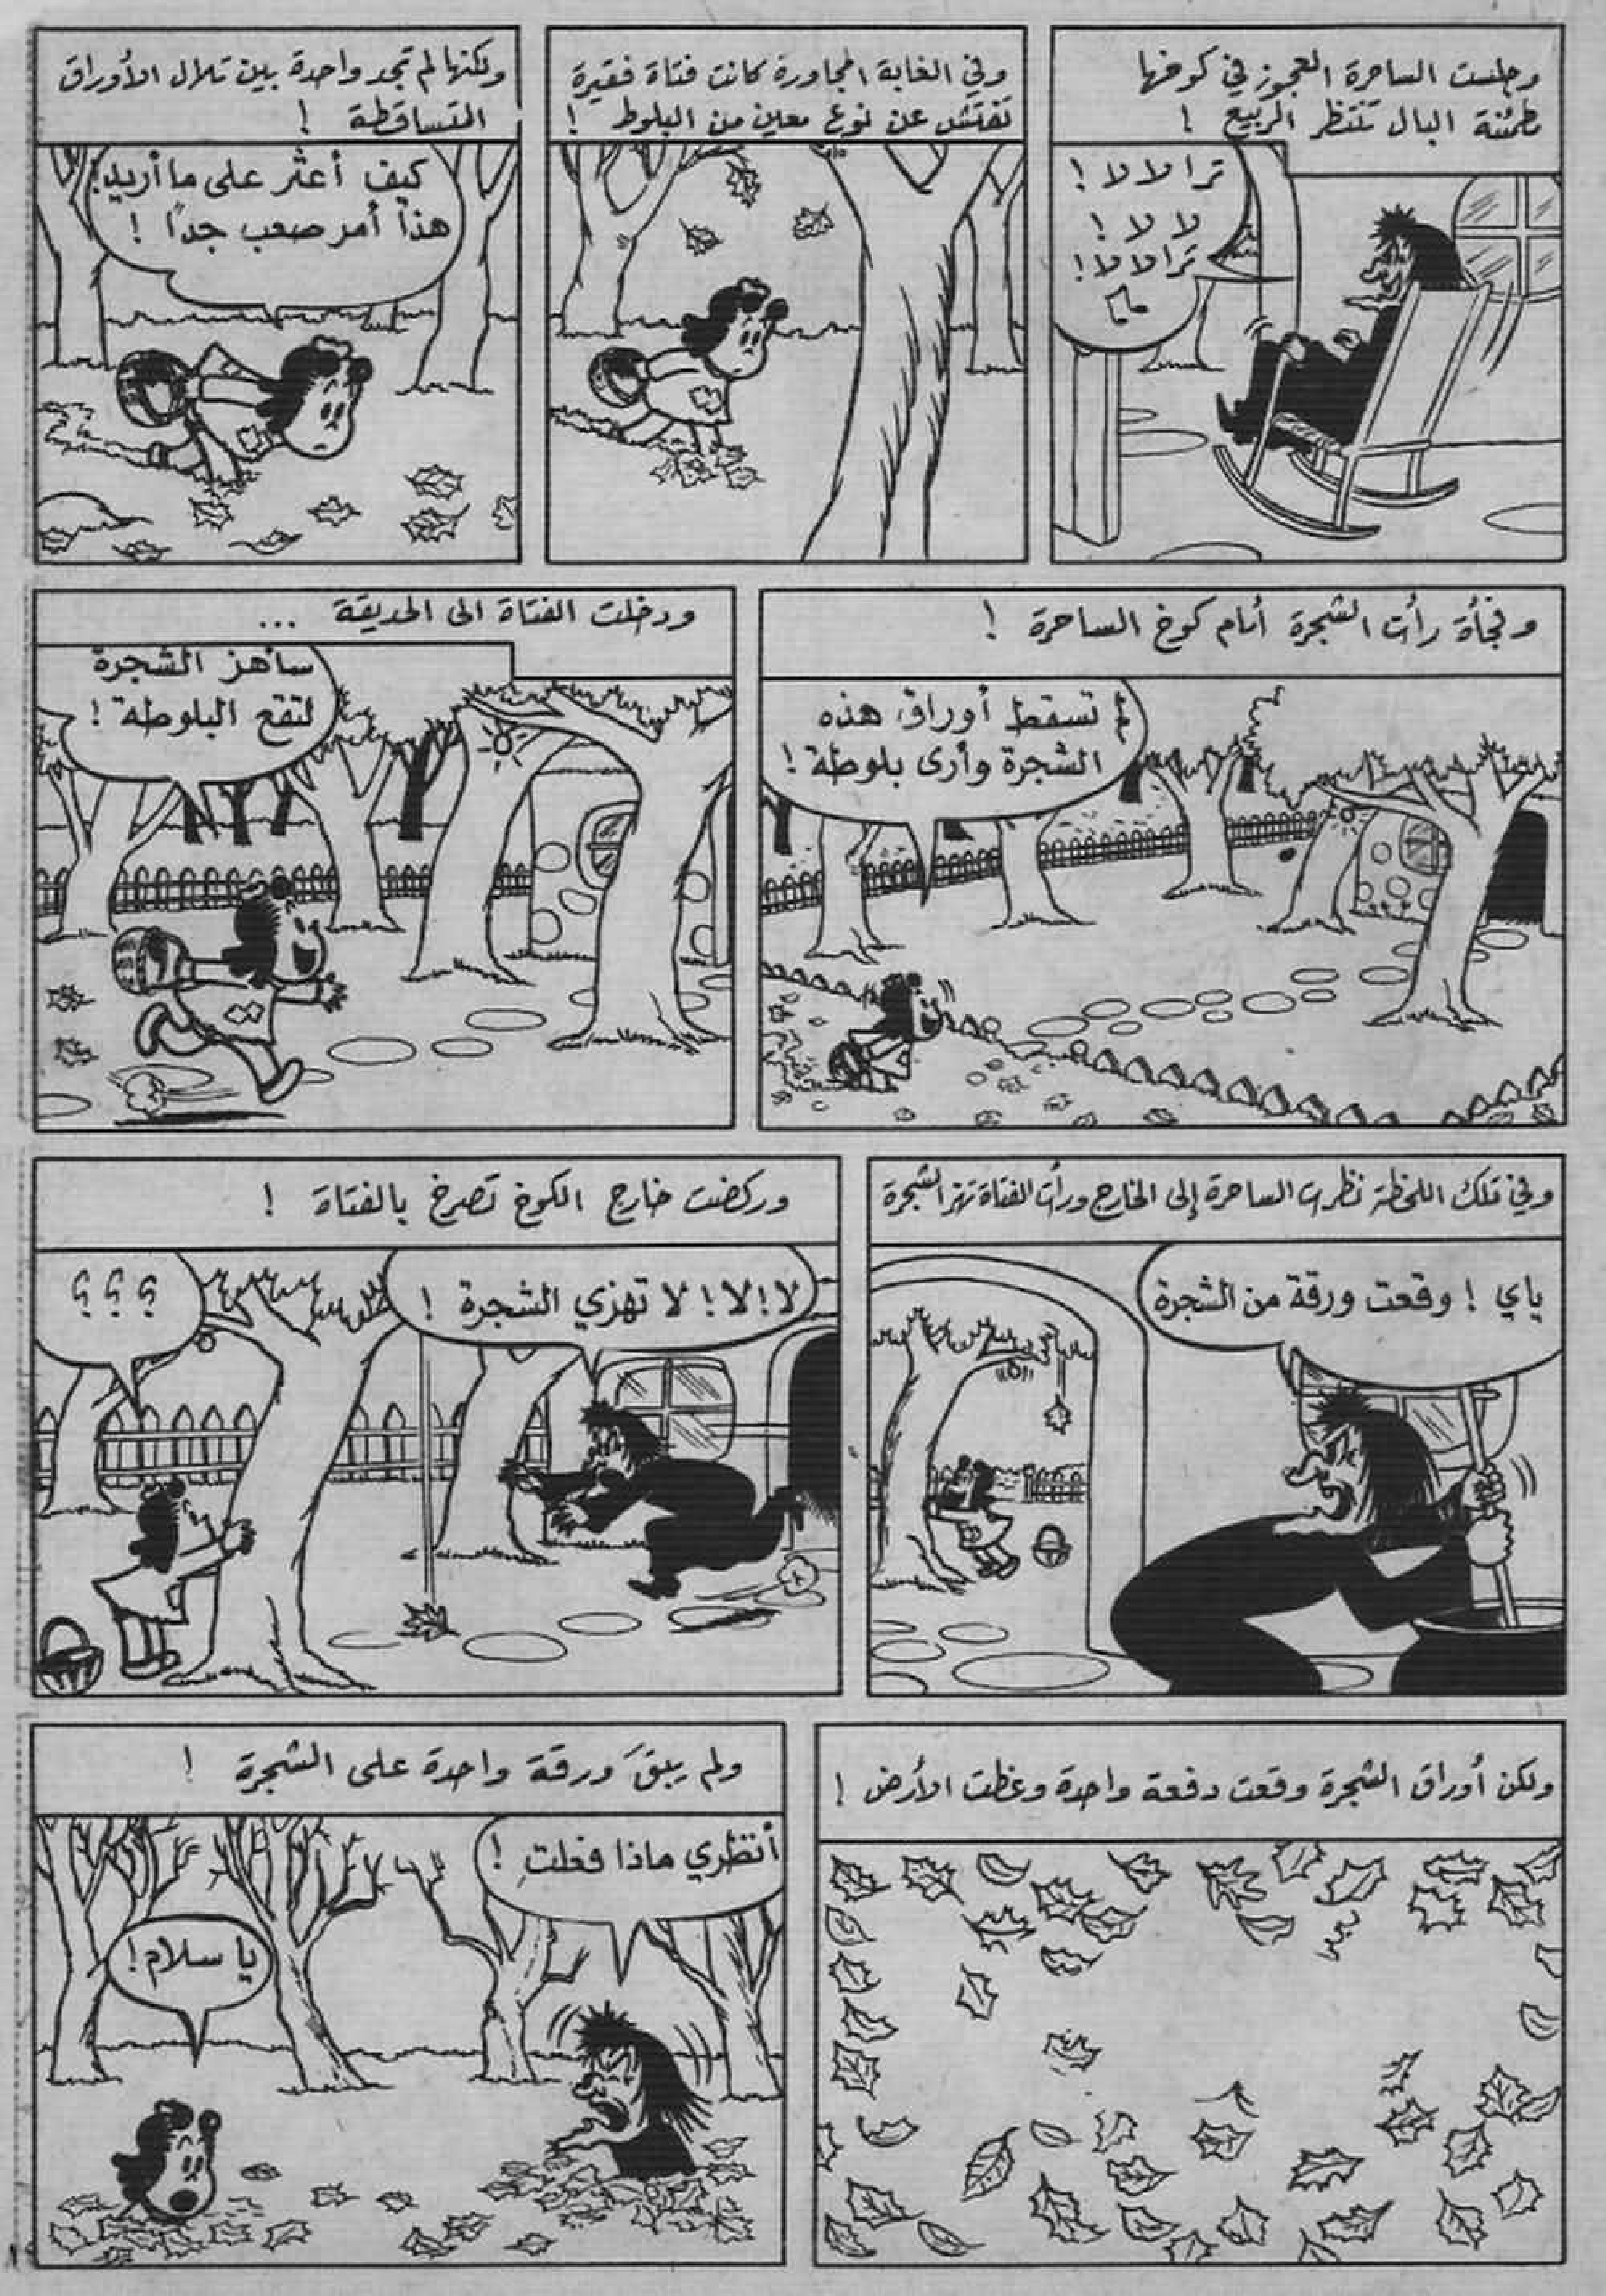 وجلست الساحرة العجوز في كوخها
مطمئنة البال تنتظر الربيع !
ترا لا لا !
لا لا !
ترا لا لا !
وفي الغابة المجاورة كانت فتاة فقيرة
تفتش عن نوع معين من البلوط !
ولكنها لم تجد واحدة بين تلال الأوراق
المتساقطة !
كيف أعثر على ما أريد !
هذا أمر صعب جداً !
وفجأة رأت الشجرة أمام كوخ الساحرة !
لم تسقط أوراق هذه
الشجرة وأرى بلوطة !
ودخلت الفتاة الى الحديقة ...
سأهز الشجرة
لتقع البلوطة !
وفي تلك اللحظة نظرت الساحرة إلى الخارج ورأت الفتاة تهز الشجرة
ياي ! وقعت ورقة من الشجرة
وركضت خارج الكوخ تصرخ بالفتاة !
لا ! لا ! لا تهزي الشجرة !
؟ ؟ ؟
ولكن أوراق الشجرة وقعت دفعة واحدة وغطت الأرض !
ولم يبقَ ورقة واحدة على الشجرة !
أنظري ماذا فعلتِ !
يا سلام !